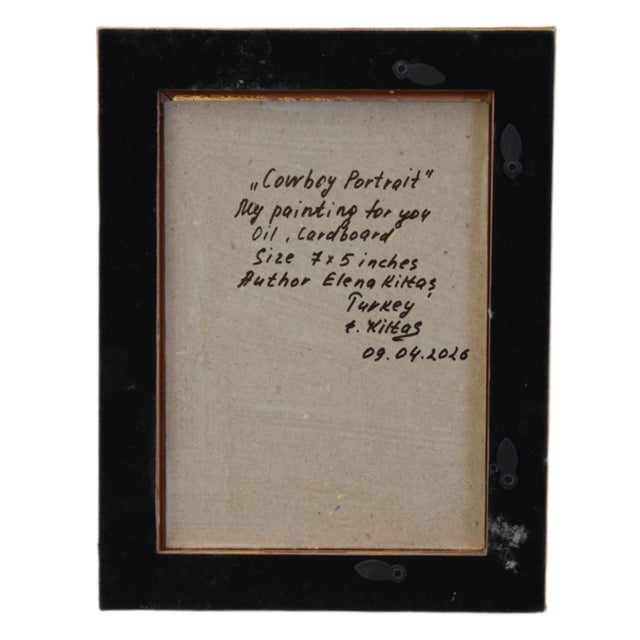 „Cowboy Portrait"
My painting for you
Oil, Cardboard
Size 7x5 inches
Author Elena Kiltaş
Turkey
E. Kiltaş
09.04.2026